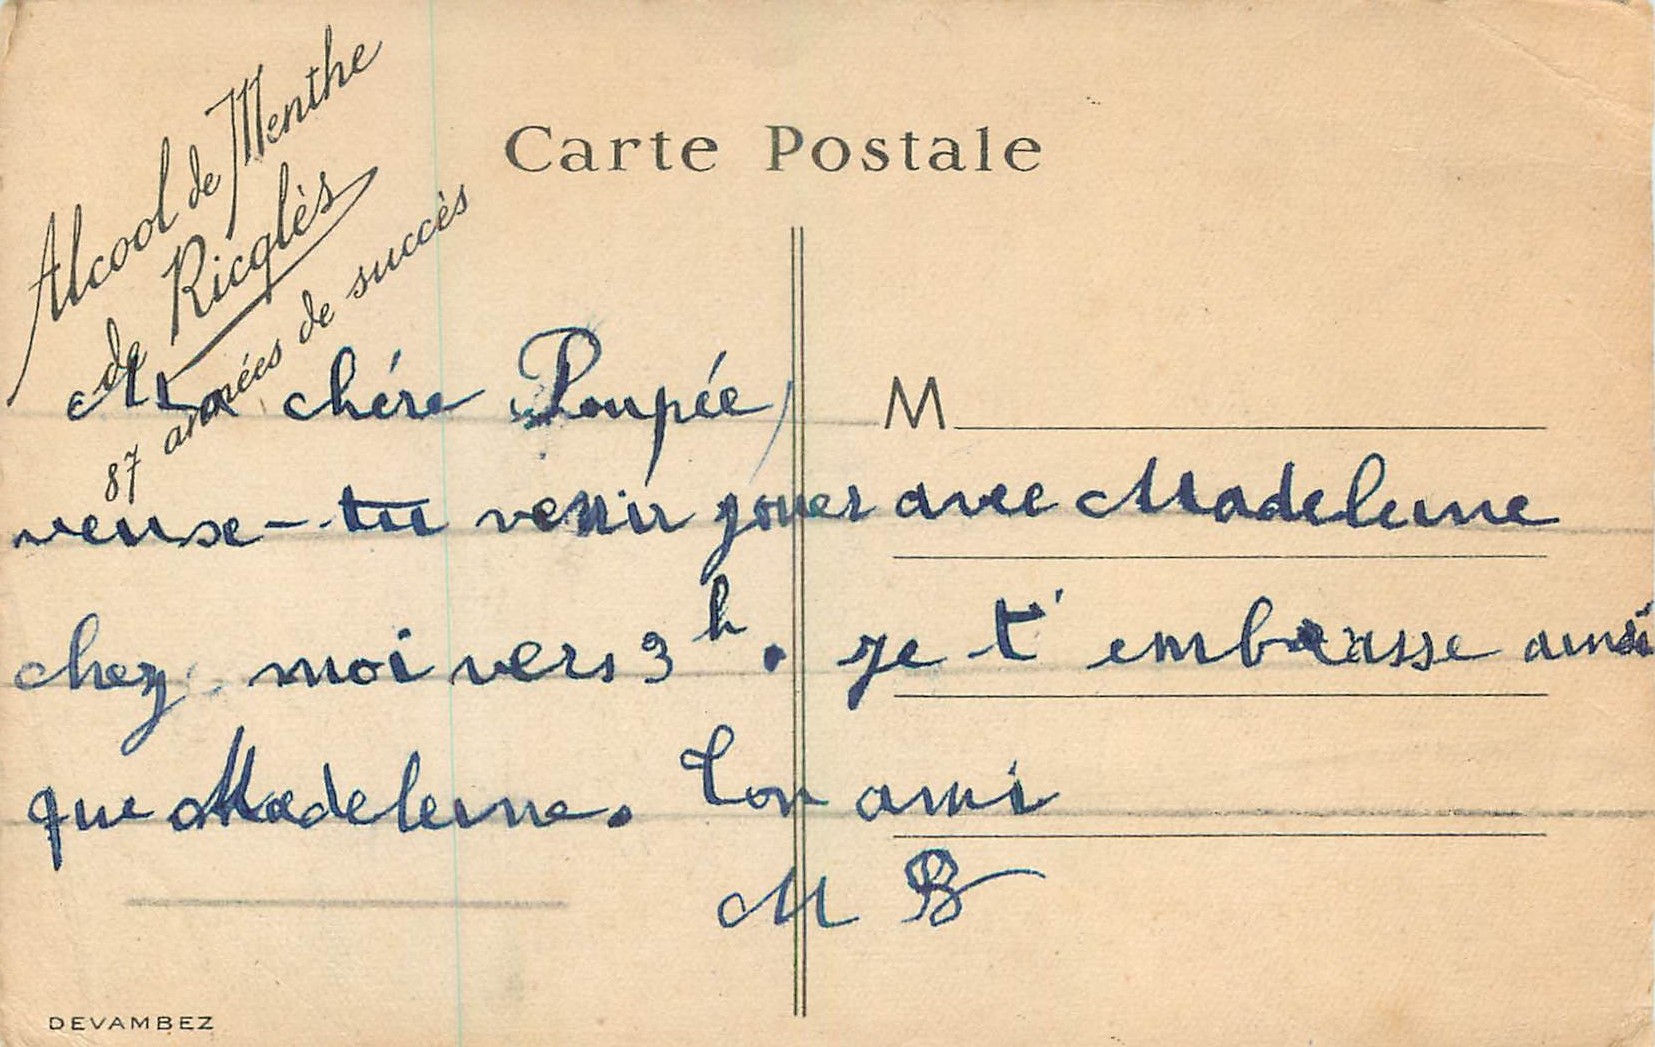 Alcool de Menthe
de Ricqlès
87 années de succès
Carte Postale
Ma chére Poupée,
M
veuse-tu venir jouer avec Madeleine
chez moi vers 3h. je t'embrasse ainsi
que Madeleine. Ton ami
M B
DEVAMBEZ